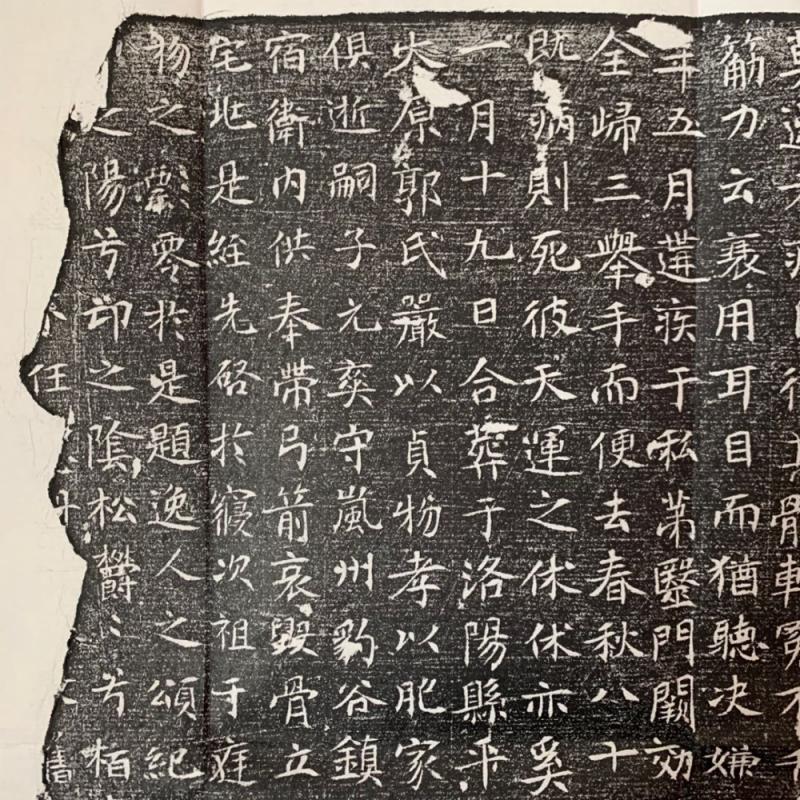 莫
筋力云衰用耳目而猶聽決嫌
年五月遘疾于私第毉門闕効
全歸三舉手而便去春秋八十
既病則死彼天運之休休亦奚
一月十九日合葬于洛陽縣平
太原郭氏嚴以貞物孝以肥家
俱逝嗣子元奕守嵐州豹谷鎮
宿衛內供奉帶弓箭哀毀骨立
宅兆是經先啓於寢次祖于庭
物之零於是題逸人之頌紀
之陽兮邙之陰松欝〻兮栢
任